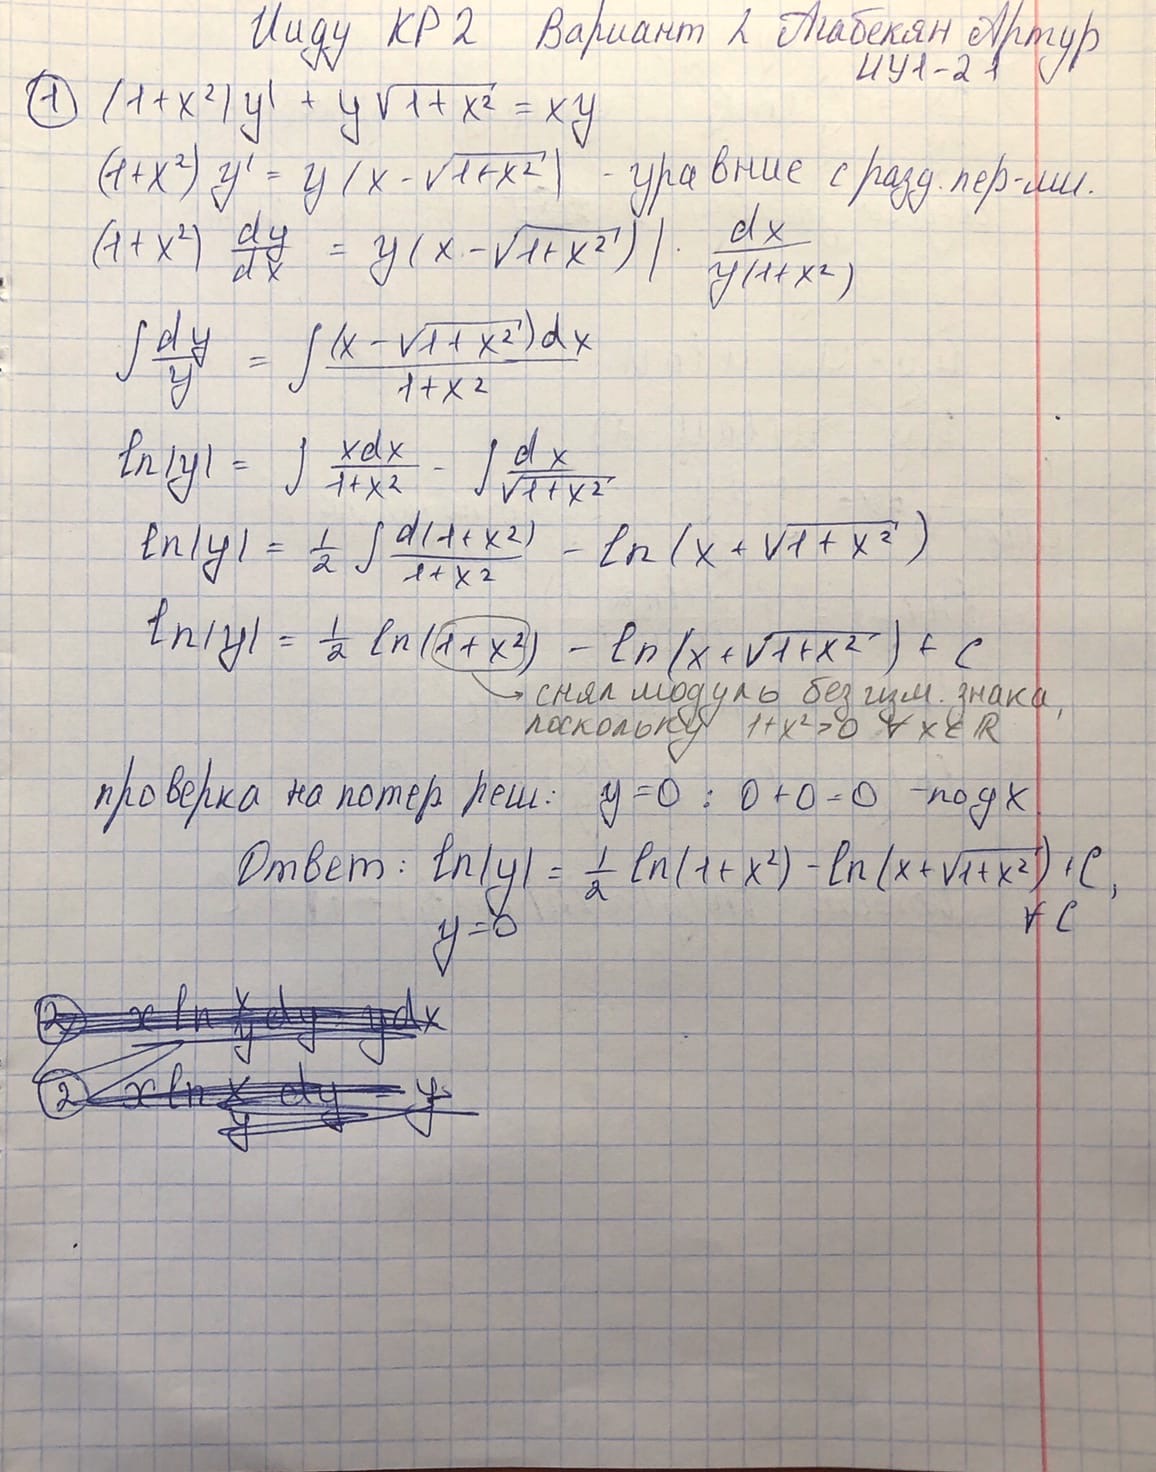 Ииду КР 2 Вариант 2 Агабекян Артур
ИУ1-21
① (1+x²)y' + y√(1+x²) = xy
(1+x²) y' = y(x-√(1+x²)) - уравние с разд. пер-ми.
(1+x²) dy/dx = y(x-√(1+x²)) | · dx/(y(1+x²))
∫ dy/y = ∫ (x-√(1+x²))dx/(1+x²)
ln|y| = ∫ xdx/(1+x²) - ∫ dx/√(1+x²)
ln|y| = 1/2 ∫ d(1+x²)/(1+x²) - ln(x+√(1+x²))
ln|y| = 1/2 ln(1+x²) - ln(x+√(1+x²)) + C
снял модуль без изм. знака,
поскольку 1+x²>0 ∀ x∈ℝ
проверка на потер. реш: y=0 : 0+0=0 -подх
Ответ: ln|y| = 1/2 ln(1+x²) - ln(x+√(1+x²)) + C,
y=0 ∀ C
② x ln x/y dy = ydx
② x ln x/y dy = y